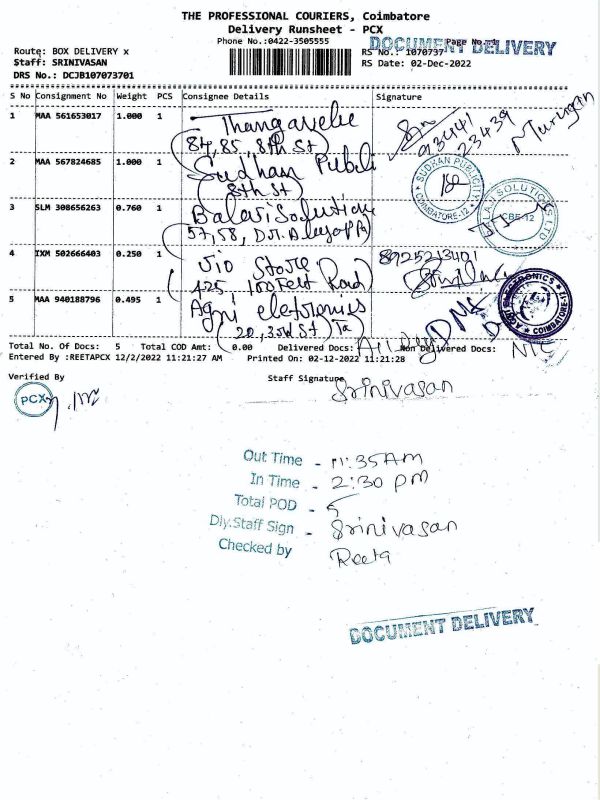 THE PROFESSIONAL COURIERS, Coimbatore
Delivery Runsheet - PCX
Phone No.:0422-3505555
DOCUMENT DELIVERY
Route: BOX DELIVERY x
RS No.: 1070737
Staff: SRINIVASAN
RS Date: 02-Dec-2022
DRS No.: DCJB107073701
S No Consignment No Weight PCS Consignee Details Signature
1 MAA 561653017 1.000 1 Thangavelu
84,85, 8th St
93441
23439
Murugan
2 MAA 567824685 1.000 1 Sudhan
(8th St)
SUDHAN PUBLICITY
COIMBATORE-12
3 SLM 308656263 0.760 1 Balaji Solution
57,58,
SOLUTIONS
LTD
CBE-12
4 IXM 502666403 0.250 1 Jio Store
125 100 Feet Road
8925213401
5 MAA 940188796 0.495 1 Agni
ELECTRONICS
COIMBATORE
Total No. Of Docs: 5 Total COD Amt: 0.00 Delivered Docs: Non Delivered Docs: NIL
Entered By :REETAPCX 12/2/2022 11:21:27 AM Printed On: 02-12-2022 11:21:28
Verified By
Staff Signature
Srinivasan
PCX
Out Time - 11:35 AM
In Time - 2:30 PM
Total POD - 5
Dly.Staff Sign - Srinivasan
Checked by Reeta
DOCUMENT DELIVERY